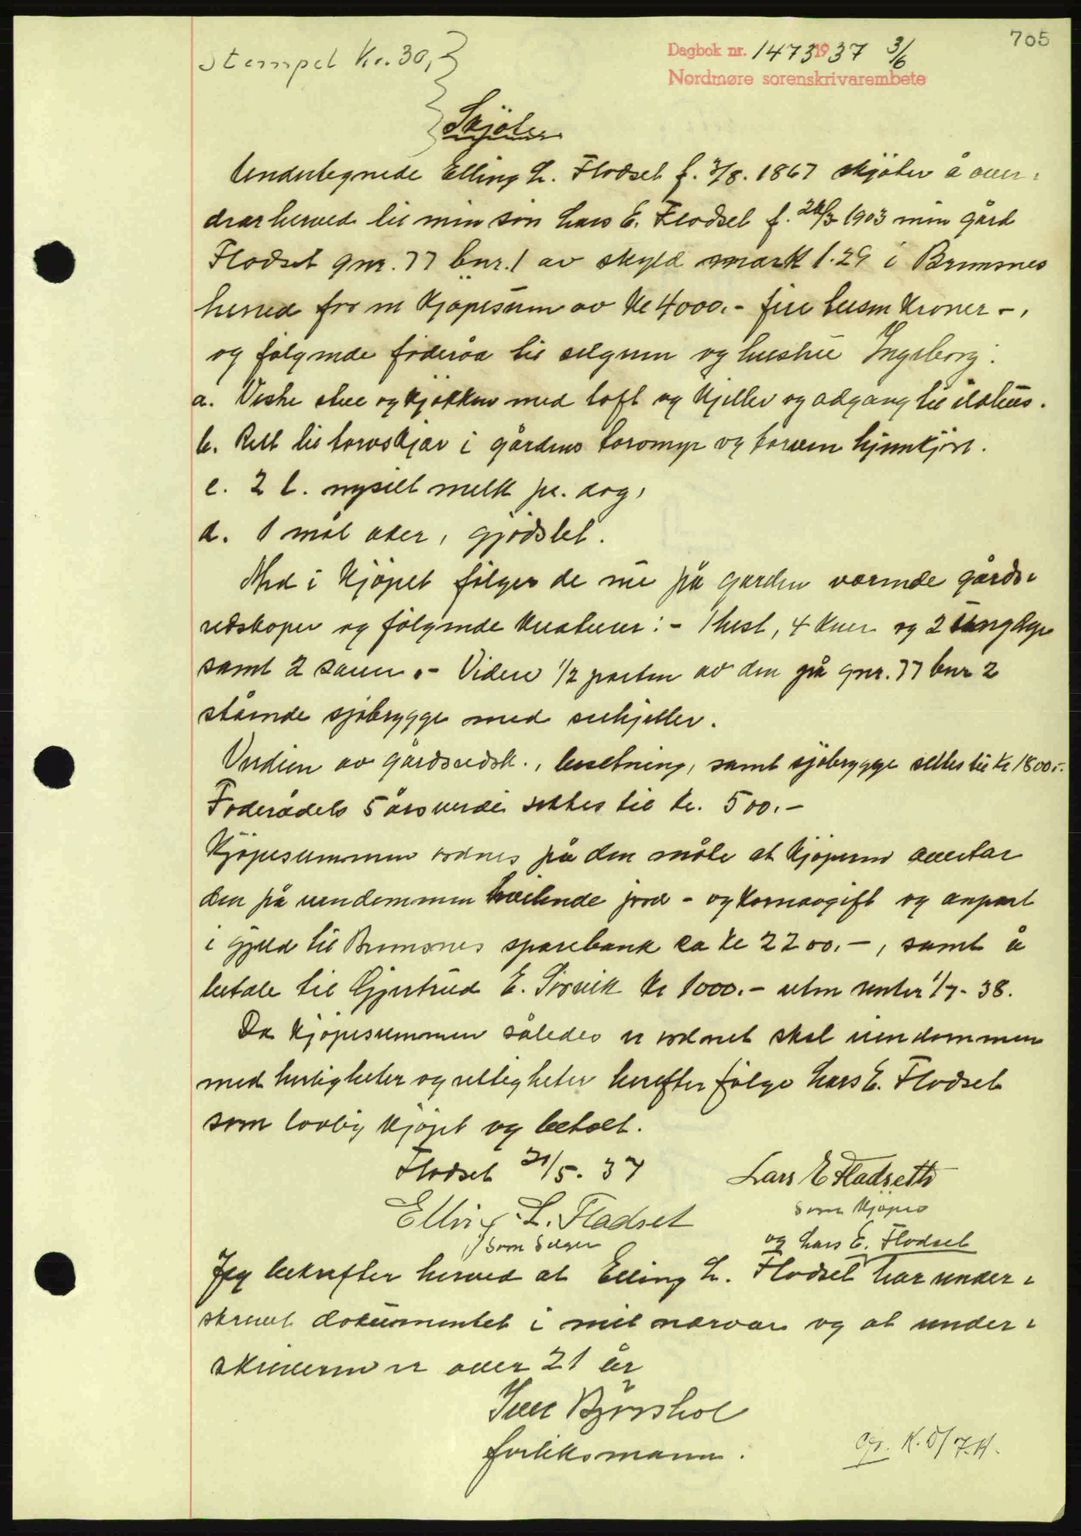 705
Stempel Kr. 30,-
Dagbok nr. 1473 1937 3/6
Nordmøre sorenskrivarembete
Skjöte
Undertegnede Elling L. Flodset f. 3/8. 1867 skjöter å over-
drar herved til min sön Lars E. Flodset f. 26/3 1903 min gård
Flodset gnr. 77 bnr. 1 av skyld mark 1.29 i Bremsnes
herred for en kjöpesum av kr 4000.- fire tusen kroner -,
og fölgende föderåd til selgeren og hustru Ingeborg:
a. Vestre stue og kjökken med loft og kjeller og adgang til ildhus.
b. Rett til torvskjær i gårdens torvmyr og torven hjemkjört.
c. 2 l. nysilt melk pr. dag,
d. 1 mål aker, gjödslet.
Med i kjöpet fölger de nu på garden værende gårds-
redskaper og fölgende kreaturer: - 1 hest, 4 kuer og 2 ungdyr
samt 2 sauer. - Videre 1/2 parten av den på gnr. 77 bnr 2
stående sjöbrygge med kjeller.
Verdien av gårdsredsk., besetning, samt sjöbrygge settes til kr 1800.-
Foderådets 5 årsverdi settes til kr. 500.-
Kjöpesummen ordnes på den måte at kjöperen overtar
den på eiendommen heilende jord - og kornavgift og anpart
i gjeld til Bremsnes sparebank ca kr 2200.-, samt å
betale til Gjertrud E. Sörvik kr 1000.- uten renter 1/7- 38.
Da kjöpesummen således er ordnet skal eiendommen
med herligheter og rettigheter herefter fölge Lars E. Flodset
som lovlig kjöpt og betalt.
Flodset 31/5. 37
Lars E Fladseth
som kjöper
Elling L. Fladset
som Selger
og Lars E. Flodset
Jeg bekrefter herved at Elling L. Flodset har under-
skrevet dokumentet i mit nærvær og at under-
skriveren er over 21 år
Iver Bjørshol
forliksmann.
K.D/7.H.